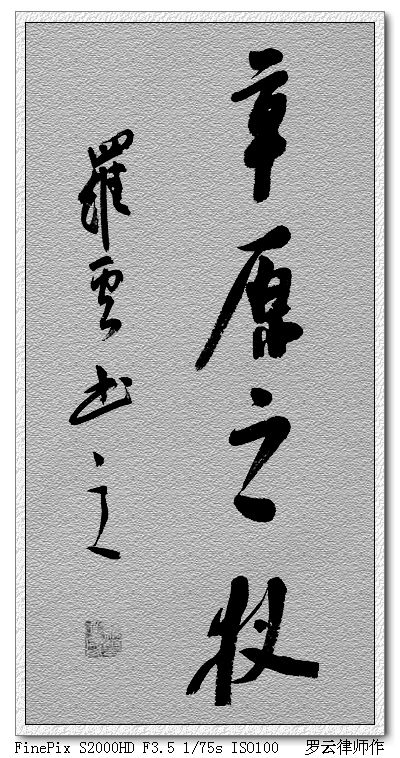 草原之牧
羅雲书之
FinePix S2000HD F3.5 1/75s ISO100 罗云律师作